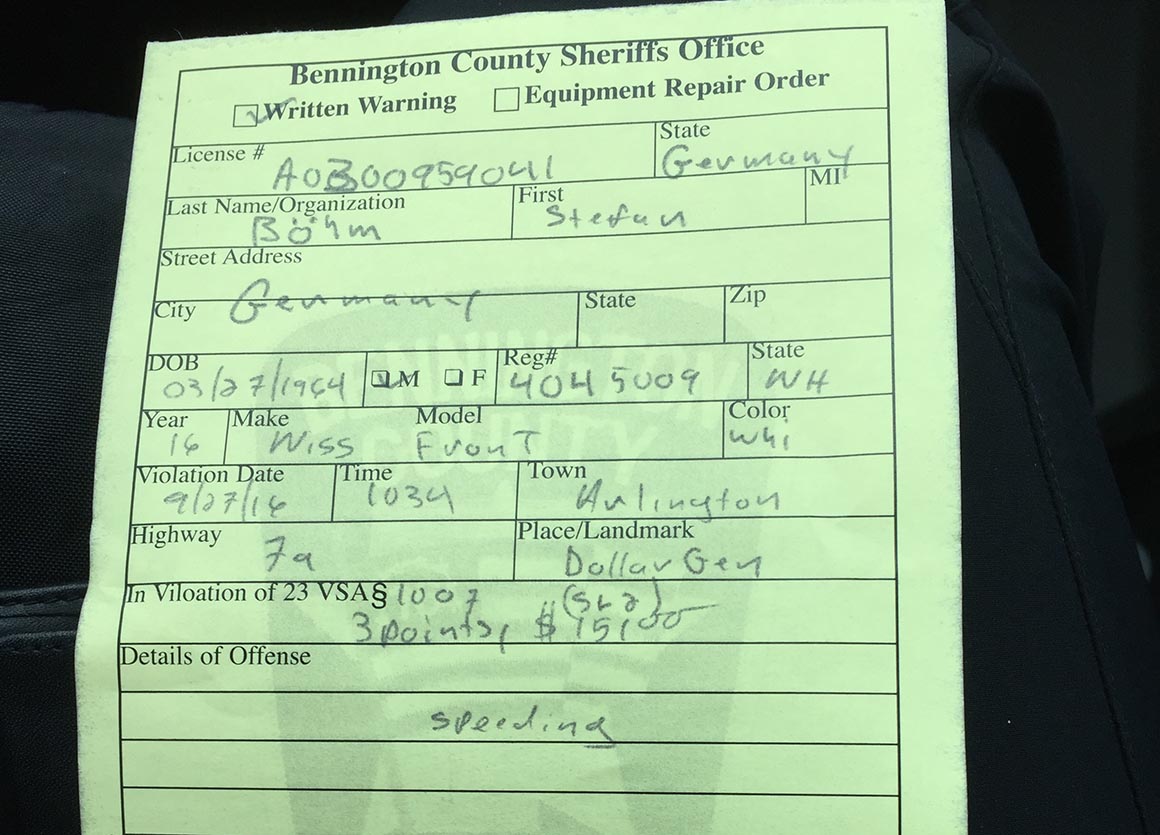 Bennington County Sheriffs Office
Written Warning Equipment Repair Order
License # A0B00959041 State Germany
Last Name/Organization Böhm First Stefan MI
Street Address
City Germany State Zip
DOB 03/27/1964 M F Reg# 4045009 State WH
Year 16 Make Niss Model Front Color Whi
Violation Date 9/27/16 Time 1034 Town Arlington
Highway 7a Place/Landmark Dollar Gen
In Viloation of 23 VSA§ 1007 (SL2)
3 points,
Details of Offense
speeding